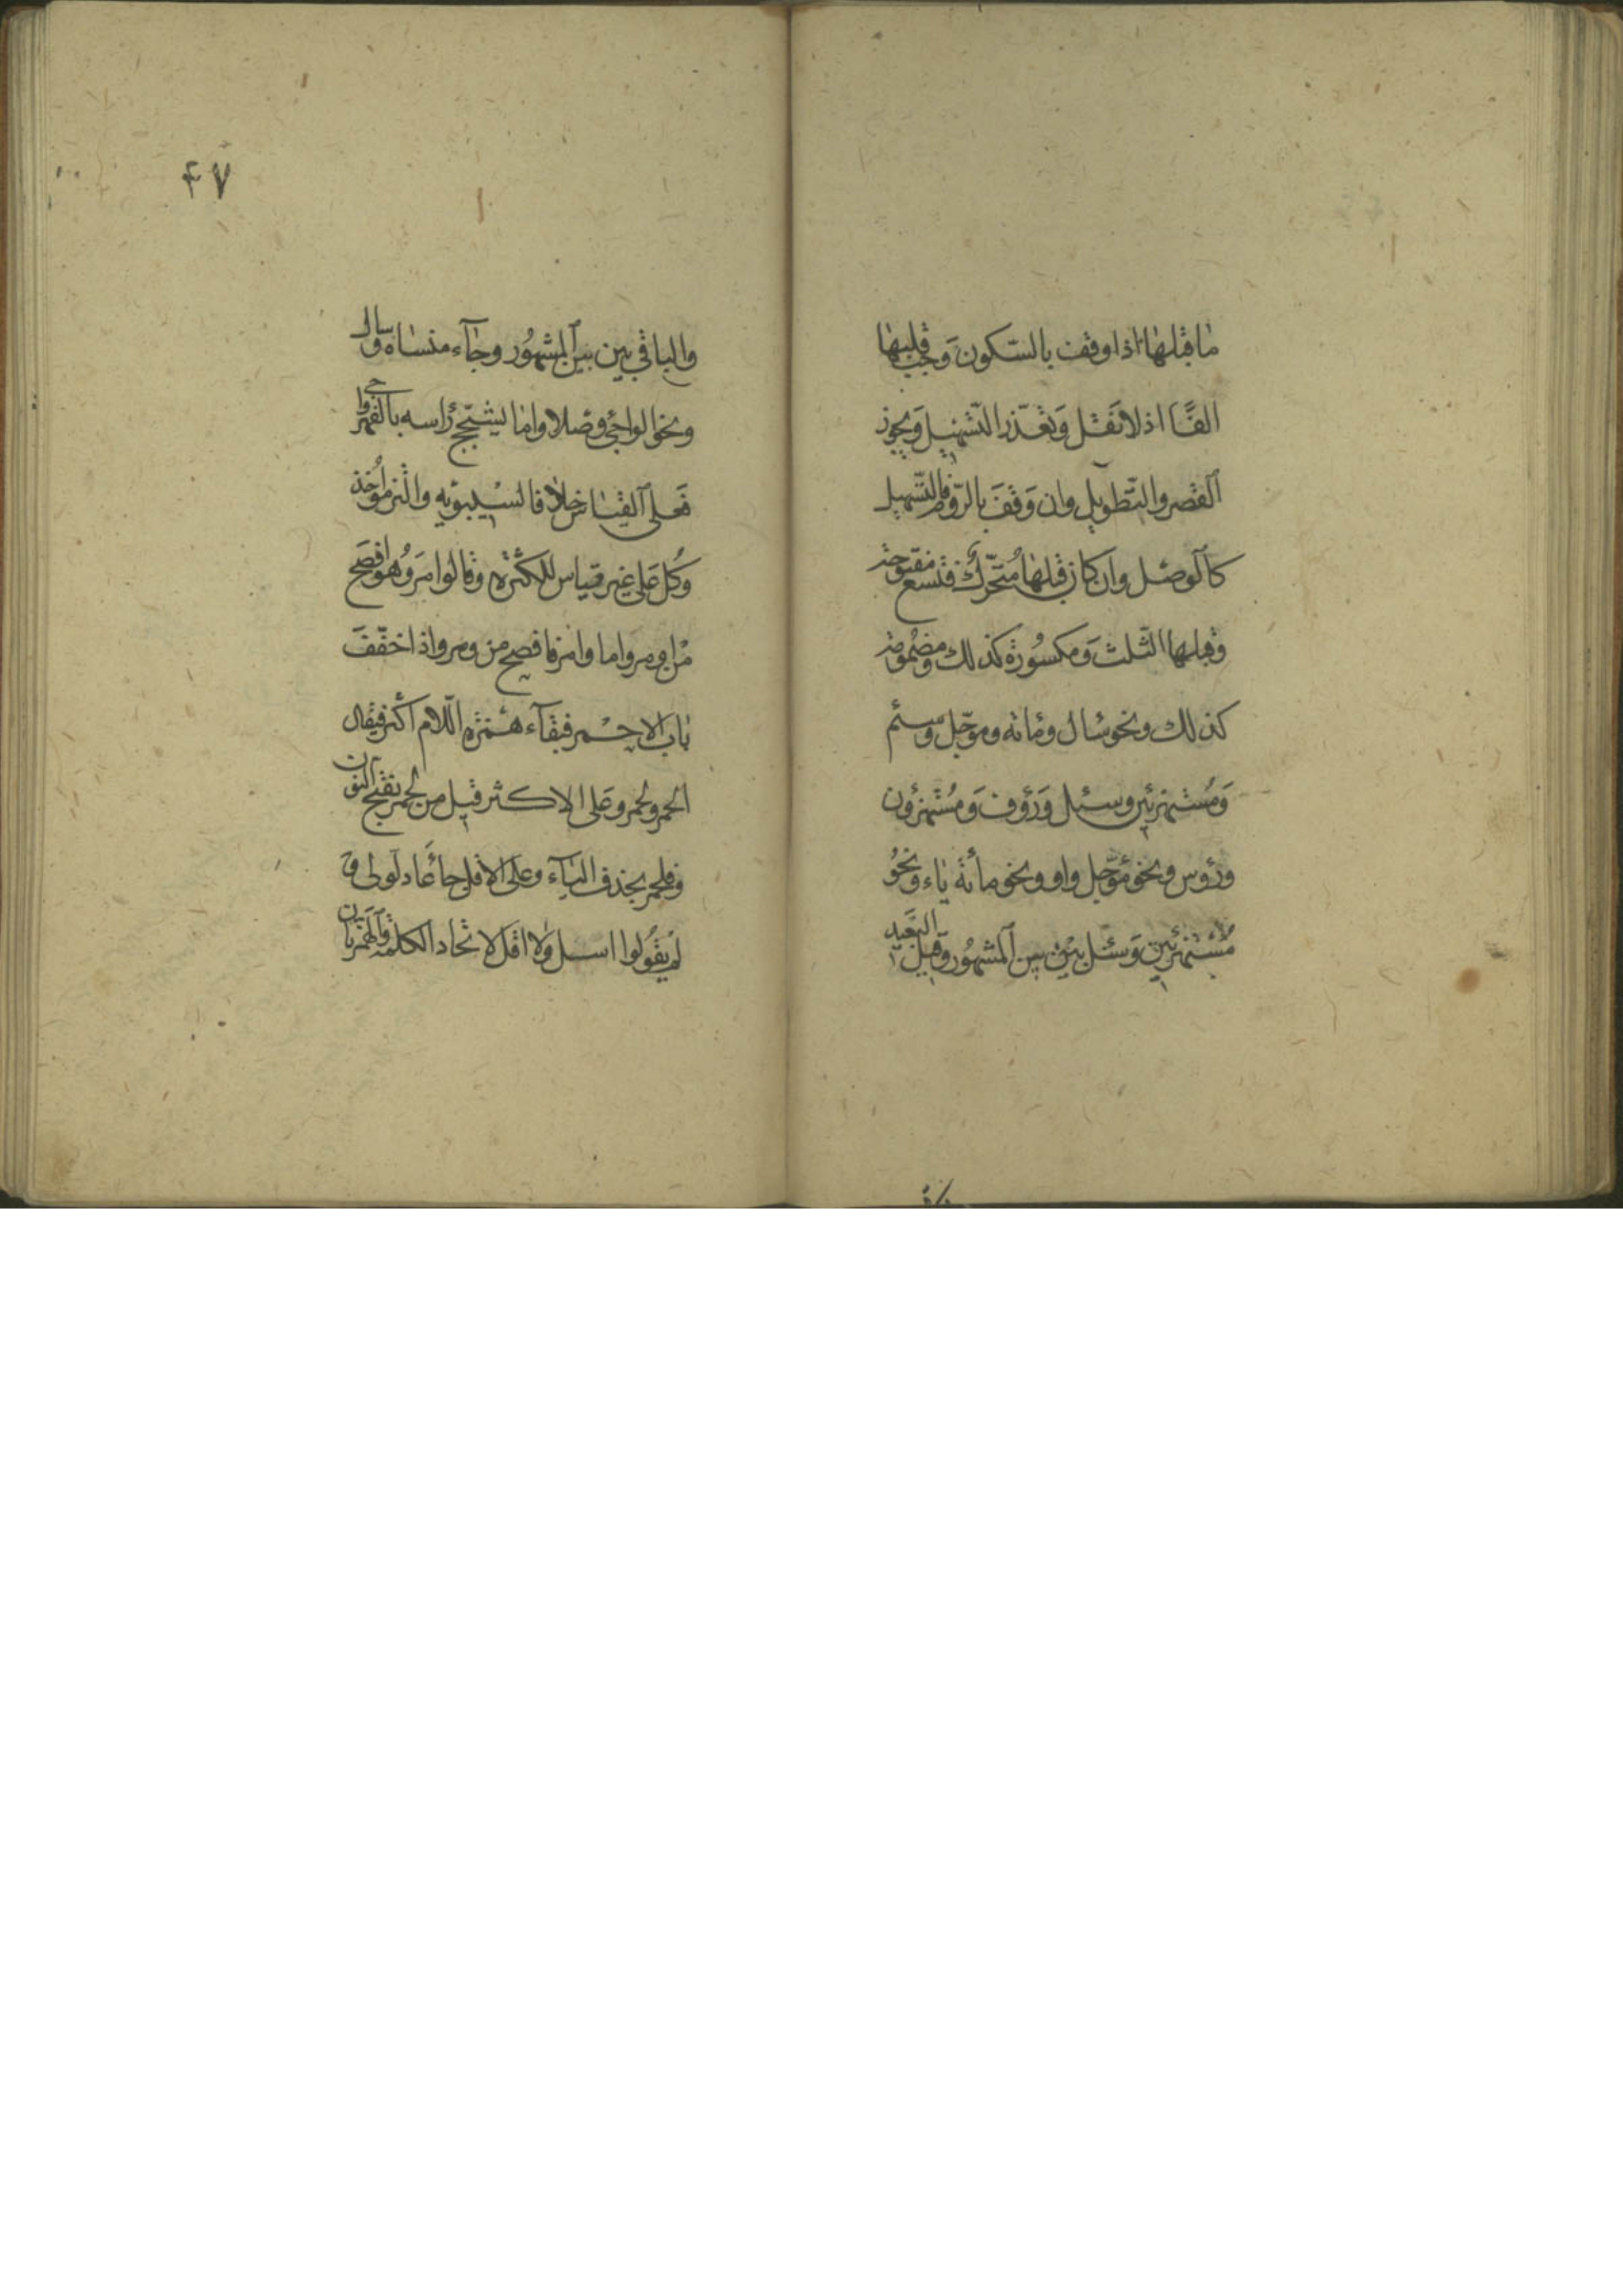 ما قبلها اذا وقف بالسّكون وَجَب قلبها
الفًا اذ لا نَقْل وَتعَذّر التّسْهيل وَيجوز
القصر والتّطويل وان وَقفَ بالرّوم فالتّسهيل
كالوصْل وان كان قبلها مُتحرّك فتسع مفتوحة
وقبلها الثّلث وَمكسُورة كذلك ومضمومة
كذلك ونحو سال ومائة وموجّل وسئم
وَمُستهزئين وسئل وَرَؤف وَمُستهزؤن
ورؤس ونحو مؤجّل واو ونحو مائة ياء ونحوُ
مُستهزئين وَسئل بين بين المشهُور وقيل البَعيد
٤٧
والباقي بين بين المشهُور وجاء منساه وسال
ونحو الواجي وصلا واما يشجّج رأسه بالفهر واجى
فعلى القياس خلافا لسيبويه والتزموا خذ
وكل على غير قياس للكثرة وقالوا مر وهو افصح
من اومر واما وامر فافصح من ومر واذا خفّفَ
باب الاحمر فبقاء همزة اللّام اكثر فيقال
الحمر ولحمر وعلى الاكثر قيل من لحمر بفتح النون
وفلحمر بحذف الياء وعلى الاقل جاء عاد لولى و
لم يقولوا اسل ولا اقل لاتحاد الكلمة والهمزتان